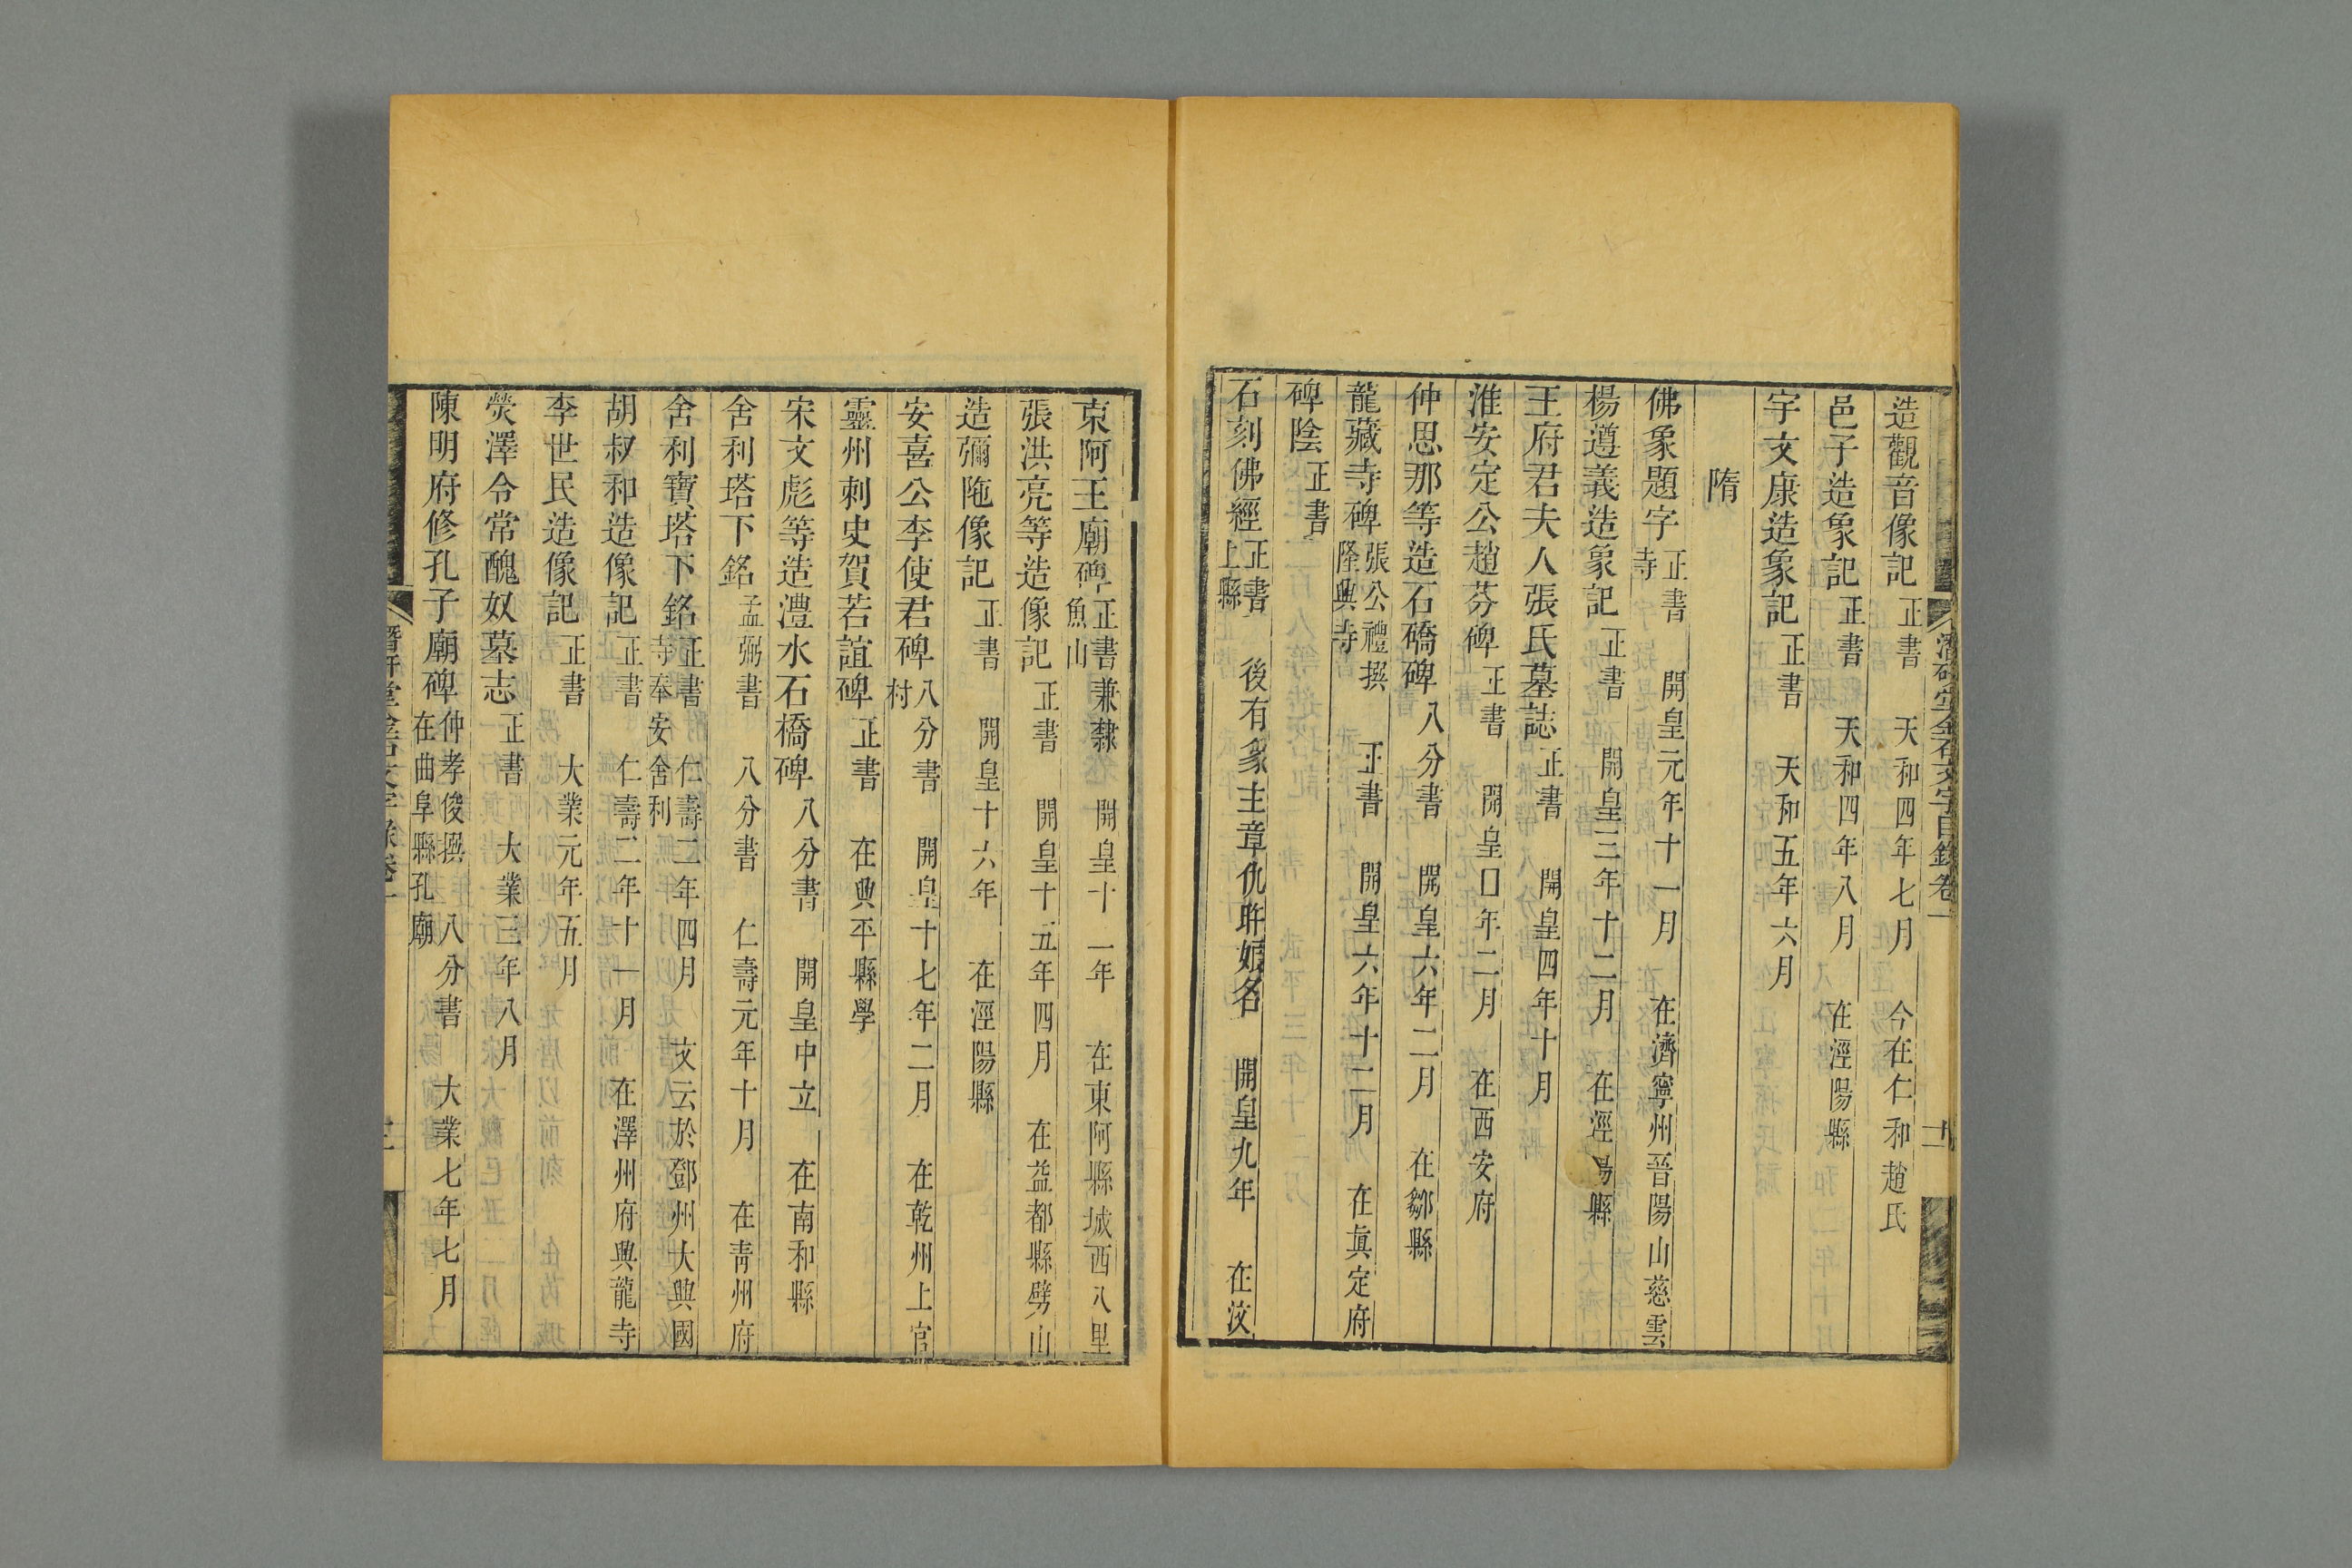 潛研堂金石文字目錄卷一
造觀音像記 正書 天和四年七月 今在仁和趙氏
邑子造象記 正書 天和四年八月 在涇陽縣
宇文康造象記 正書 天和五年六月
隋
佛象題字 正書 開皇元年十一月 在濟寧州晉陽山慈雲寺
楊遵義造象記 正書 開皇三年十二月 在涇陽縣
王府君夫人張氏墓誌 正書 開皇四年十月
淮安定公趙芬碑 正書 開皇囗年二月 在西安府
仲思那等造石礄碑 八分書 開皇六年二月 在鄒縣
龍藏寺碑 張公禮撰 正書 開皇六年十二月 在眞定府隆興寺
碑陰 正書
石刻佛經 正書 後有象主章仇娘名 開皇九年 在汶上縣
東阿王廟碑 正書兼隸 開皇十一年 在東阿縣城西八里魚山
張洪亮等造像記 正書 開皇十五年四月 在益都縣劈山
造彌陁像記 正書 開皇十六年 在涇陽縣
安喜公李使君碑 八分書 開皇十七年二月 在乾州上官村
靈州刺史賀若誼碑 正書 在興平縣學
宋文彪等造澧水石橋碑 八分書 開皇中立 在南和縣
舍利塔下銘 孟弼書 八分書 仁壽元年十月 在青州府
舍利寶塔下銘 正書 仁壽二年四月 文云於鄧州大興國寺奉安舍利
胡叔和造像記 正書 仁壽二年十一月 在澤州府興龍寺
李世民造像記 正書 大業元年五月
熒澤令常醜奴墓志 正書 大業三年八月
陳明府修孔子廟碑 仲孝俊撰 八分書 大業七年七月 在曲阜縣孔廟